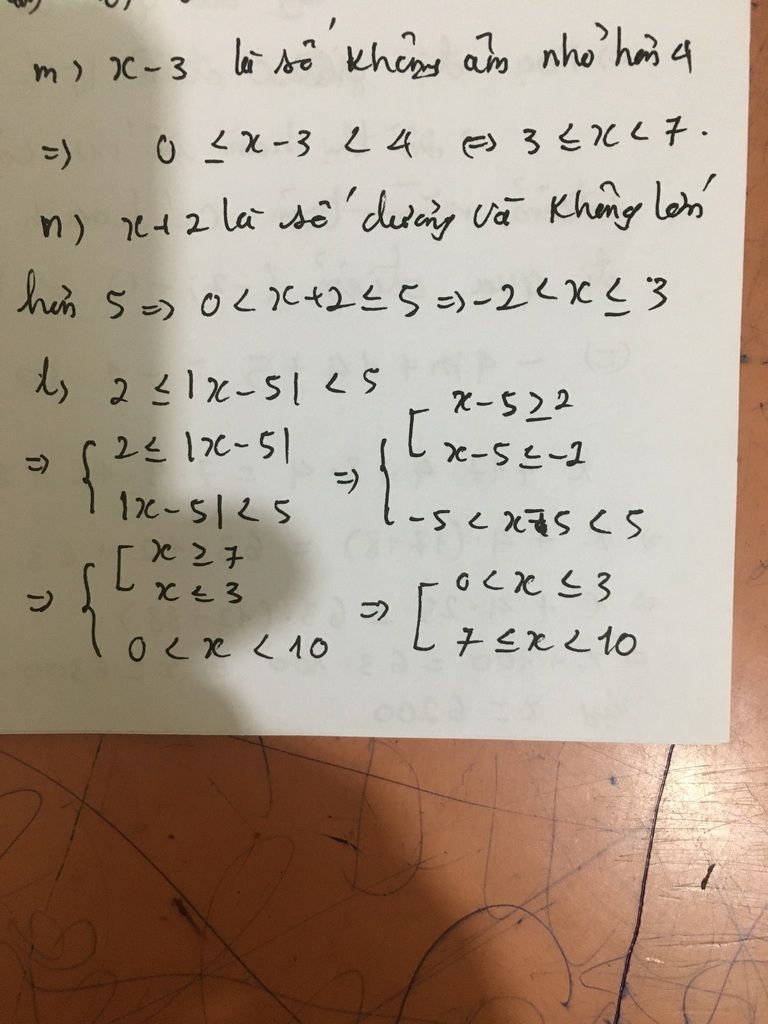 m) x - 3 là số không âm nhỏ hơn 4
=> 0 ≤ x - 3 < 4 <=> 3 ≤ x < 7.
n) x + 2 là số dương và không lớn
hơn 5 => 0 < x + 2 ≤ 5 => -2 < x ≤ 3
l, 2 ≤ |x - 5| < 5
=> { 2 ≤ |x - 5| => { [ x - 5 ≥ 2
x - 5 ≤ -2
|x - 5| < 5 -5 < x - 5 < 5
=> { [ x ≥ 7 => [ 0 < x ≤ 3
x ≤ 3
0 < x < 10 7 ≤ x < 10